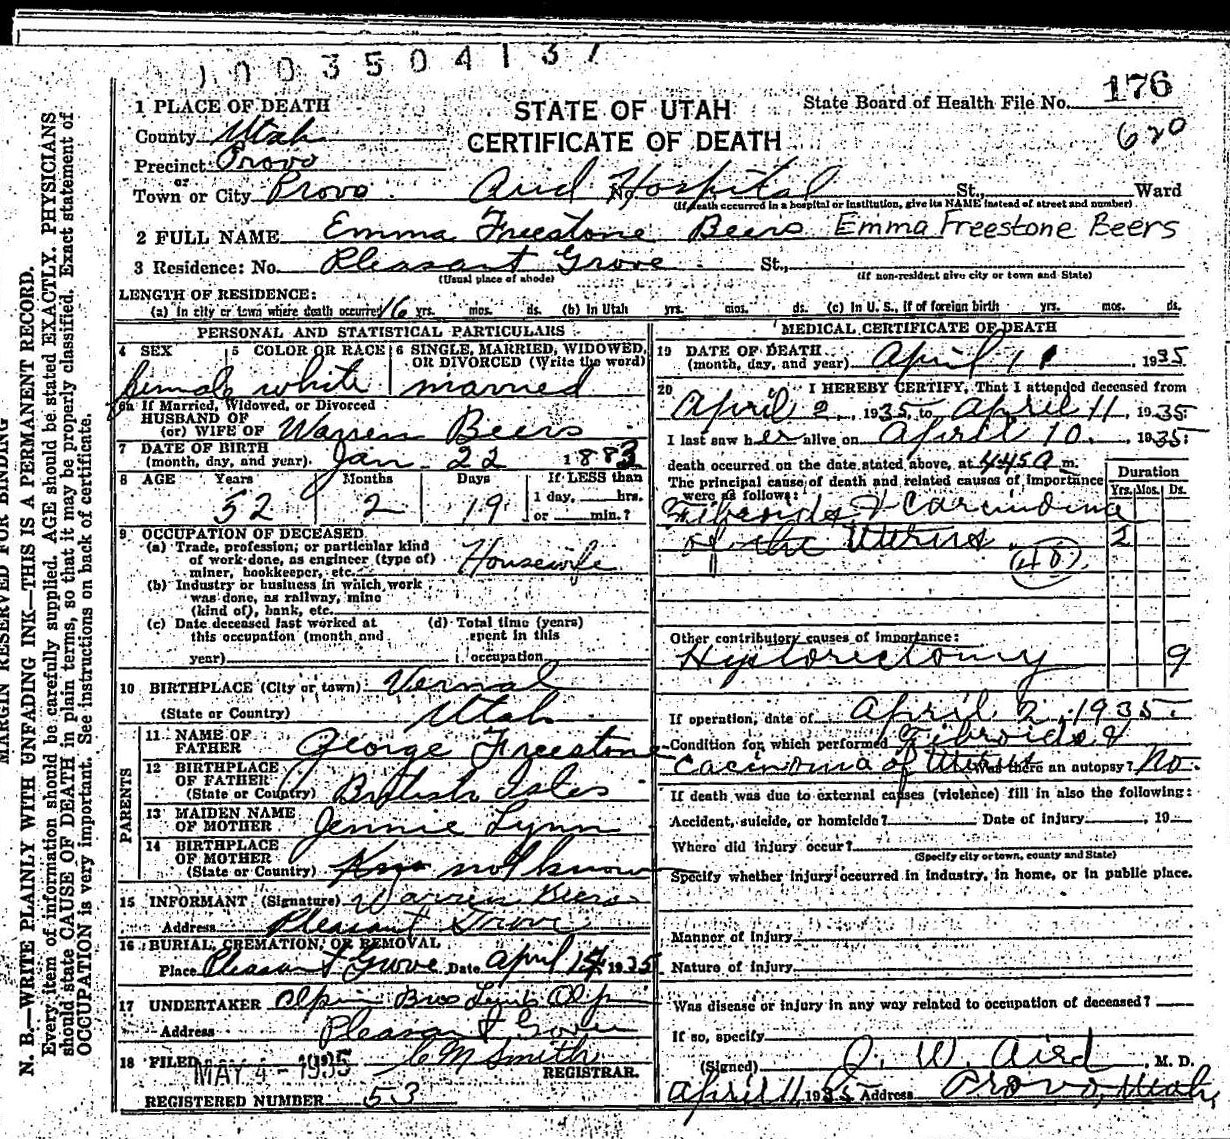 1003504137
1 PLACE OF DEATH
STATE OF UTAH
State Board of Health File No. 176
County Utah
CERTIFICATE OF DEATH
620
Precinct Provo
or
Town or City Provo Aird No. Hospital St., Ward
(If death occurred in a hospital or institution, give its NAME instead of street and number)
2 FULL NAME Emma Freestone Beers Emma Freestone Beers
3 Residence: No. Pleasant Grove St.,
(Usual place of abode) (If non-resident give city or town and State)
LENGTH OF RESIDENCE:
(a) In city or town where death occurred 16 yrs. mos. ds. (b) In Utah yrs. mos. ds. (c) In U. S., if of foreign birth yrs. mos. ds.
PERSONAL AND STATISTICAL PARTICULARS
4 SEX 5 COLOR OR RACE 6 SINGLE, MARRIED, WIDOWED,
OR DIVORCED (Write the word)
female white married
6a If Married, Widowed, or Divorced
HUSBAND OF
(or) WIFE OF Warren Beers
7 DATE OF BIRTH
(month, day, and year) Jan. 22 1883
8 AGE Years Months Days If LESS than
1 day, hrs.
52 2 19 or min.?
9 OCCUPATION OF DECEASED
(a) Trade, profession, or particular kind
of work done, as engineer (type of)
miner, bookkeeper, etc. Housewife
(b) Industry or business in which work
was done, as railway, mine
(kind of), bank, etc.
(c) Date deceased last worked at (d) Total time (years)
this occupation (month and spent in this
year) occupation
10 BIRTHPLACE (City or town) Vernal
(State or Country) Utah
PARENTS
11 NAME OF
FATHER George Freestone
12 BIRTHPLACE
OF FATHER
(State or Country) British Isles
13 MAIDEN NAME
OF MOTHER Jennie Lynn
14 BIRTHPLACE
OF MOTHER
(State or Country) not know
15 INFORMANT (Signature) Warren Beers
Address Pleasant Grove
16 BURIAL, CREMATION, OR REMOVAL
Place Pleasant Grove Date April 14 1935
17 UNDERTAKER Bros
Address Pleasant Grove
18 FILED MAY 4 - 1935 C M Smith
REGISTRAR.
REGISTERED NUMBER 53
MEDICAL CERTIFICATE OF DEATH
19 DATE OF DEATH
(month, day, and year) April 11 1935
20 I HEREBY CERTIFY, That I attended deceased from
April 2, 1935, to April 11 1935
I last saw her alive on April 10. 1935;
death occurred on the date stated above, at 445 a m.
The principal cause of death and related causes of importance
were as follows: Duration
Yrs. Mos. Ds.
Fibroids & Carcinoma
of the Uterus 2
48
Other contributory causes of importance:
Hystorectomy 9
If operation, date of April 2, 1935.
Condition for which performed Fibroids &
Cacinoma of Uterus Was there an autopsy? No.
If death was due to external causes (violence) fill in also the following:
Accident, suicide, or homicide? Date of injury , 19
Where did injury occur?
(Specify city or town, county and State)
Specify whether injury occurred in industry, in home, or in public place.
Manner of Injury
Nature of Injury
Was disease or injury in any way related to occupation of deceased?
If so, specify
(Signed) J. W. Aird M. D.
April 11, 1935 Address Provo, Utah,
MARGIN RESERVED FOR BINDING
N. B.—WRITE PLAINLY WITH UNFADING INK—THIS IS A PERMANENT RECORD.
Every item of information should be carefully supplied. AGE should be stated EXACTLY. PHYSICIANS
should state CAUSE OF DEATH in plain terms, so that it may be properly classified. Exact statement of
OCCUPATION is very important. See instructions on back of certificate.